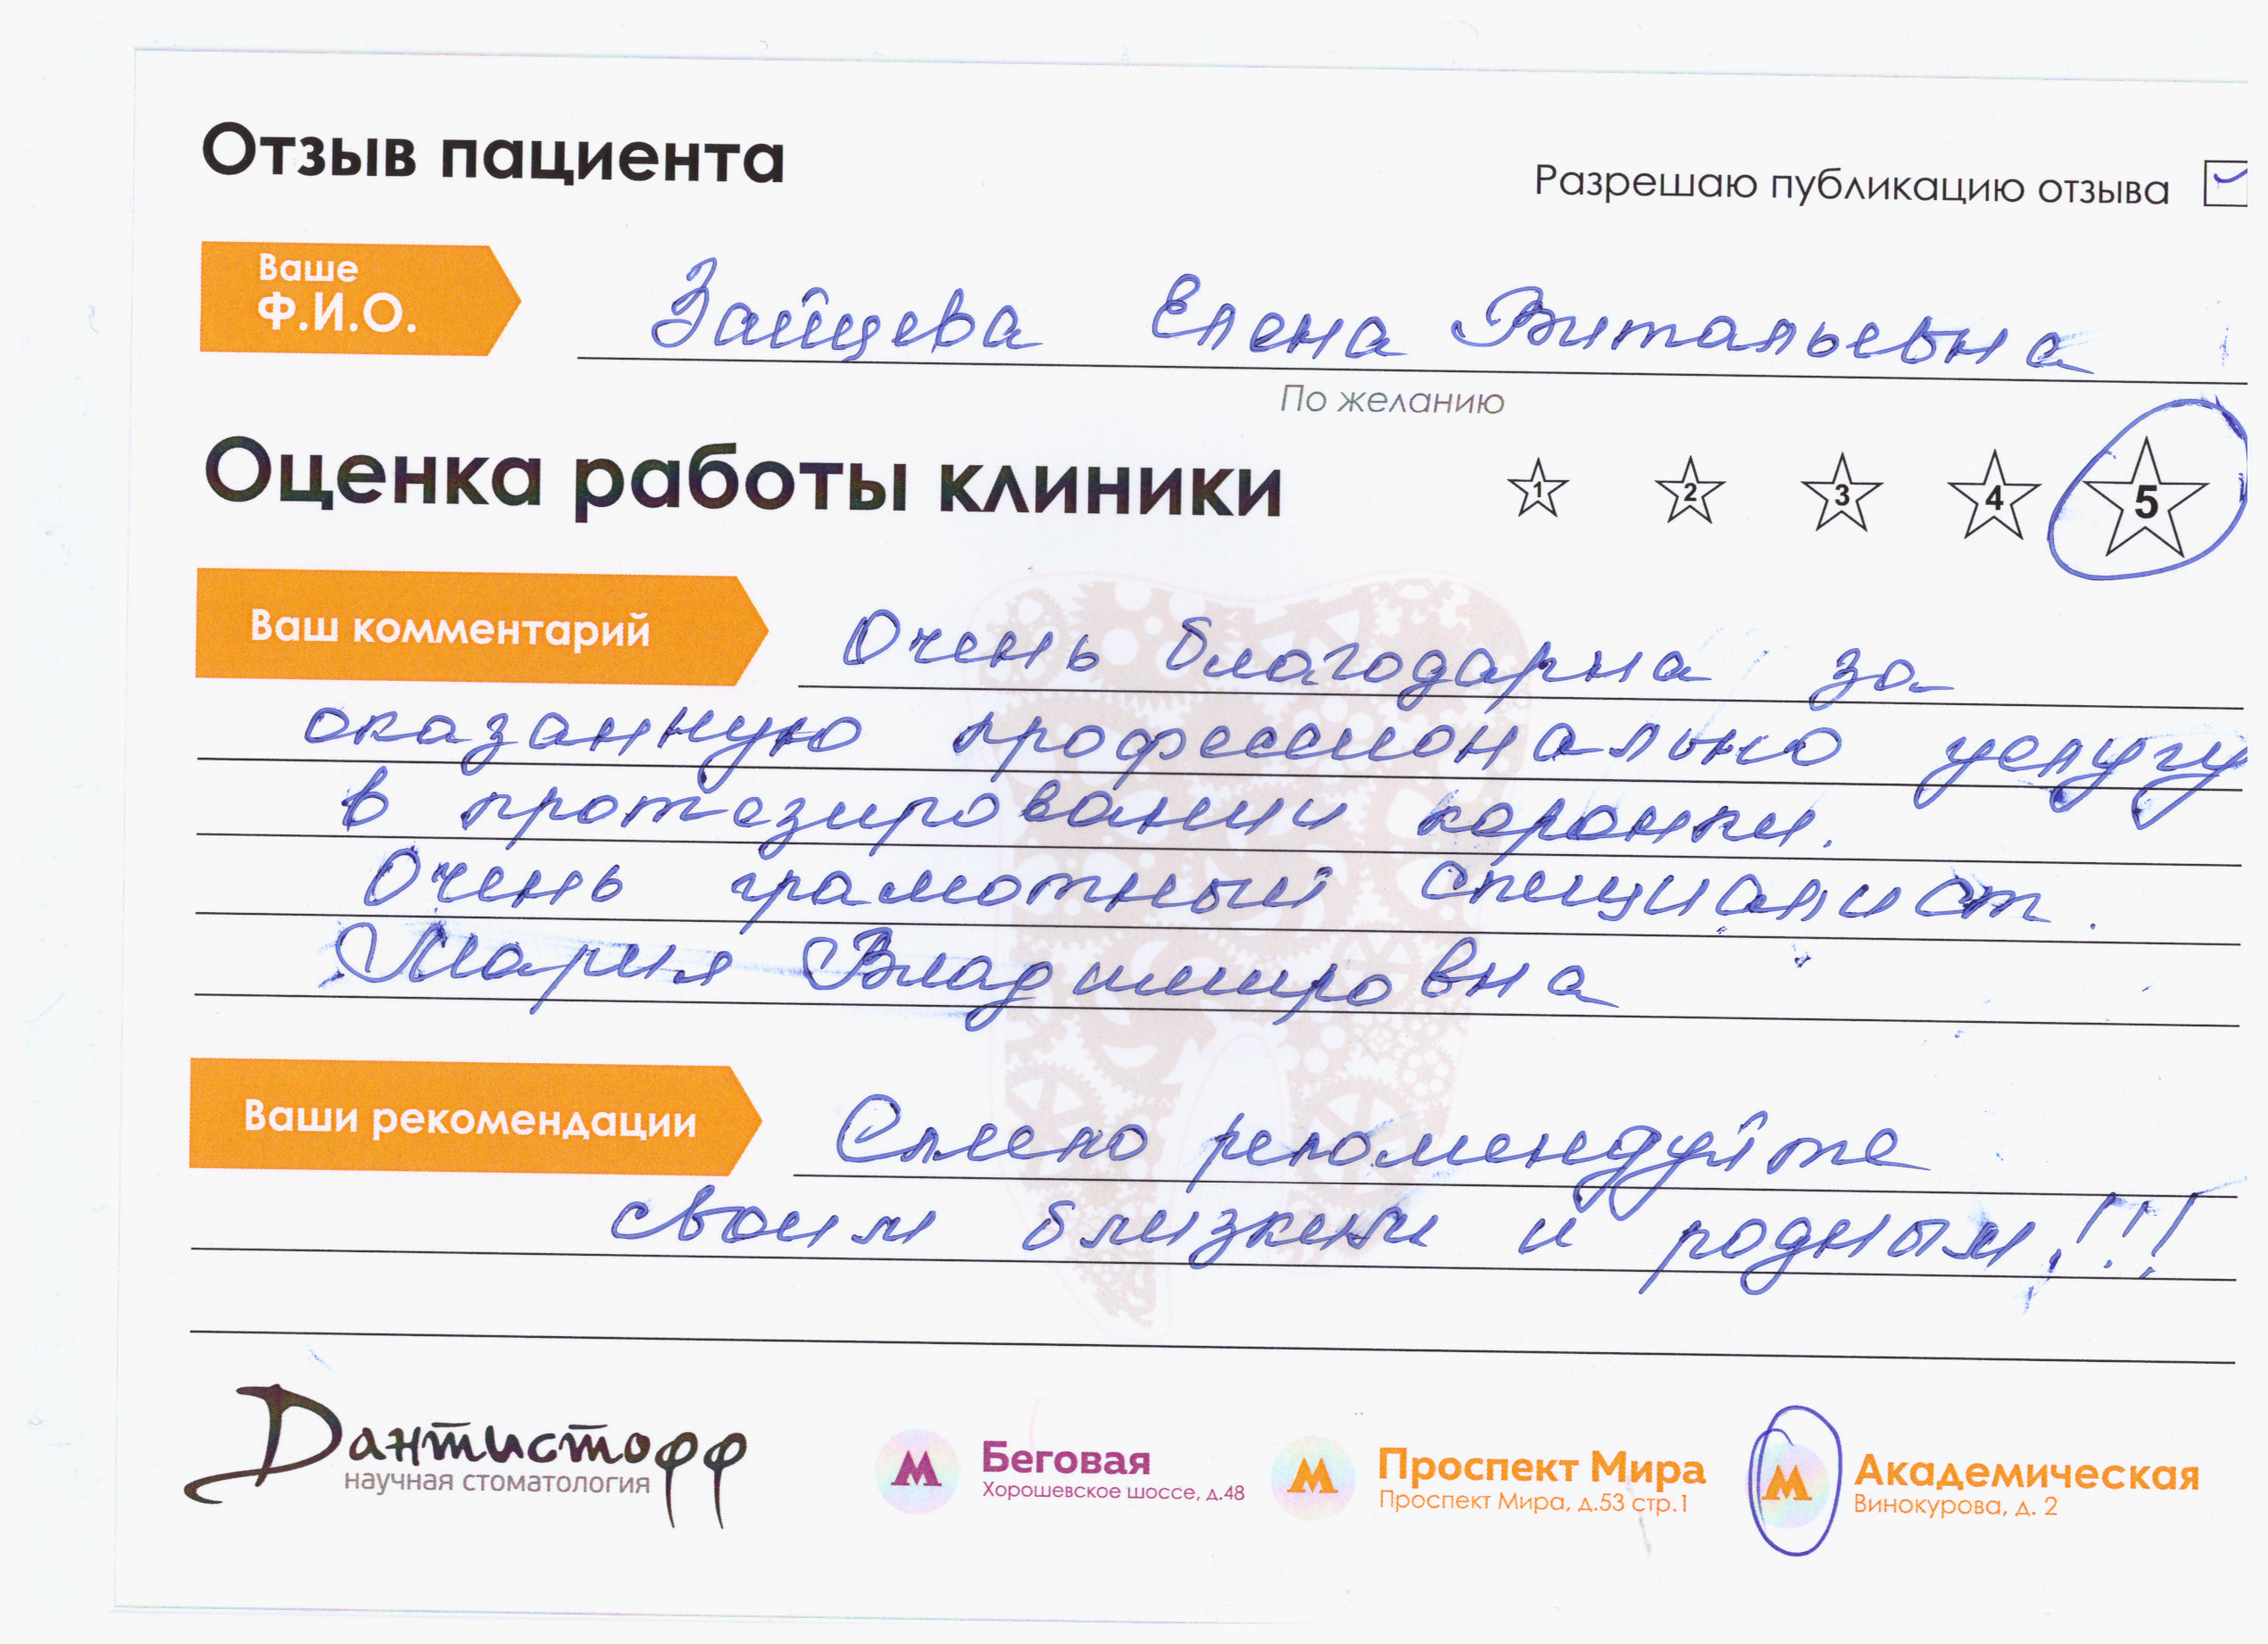 Отзыв пациента
Разрешаю публикацию отзыва
Ваше
Ф.И.О.
Зайцева Елена Витальевна
По желанию
Оценка работы клиники
1 2 3 4 5
Ваш комментарий
Очень благодарна за
оказанную профессионально услугу
в протезировании коронки.
Очень грамотный специалист.
Мария Владимировна
Ваши рекомендации
Смело рекомендуйте
своим близким и родным!!!
Дантистофф
научная стоматология
Беговая
Хорошевское шоссе, д.48
Проспект Мира
Проспект Мира, д.53 стр.1
Академическая
Винокурова, д. 2